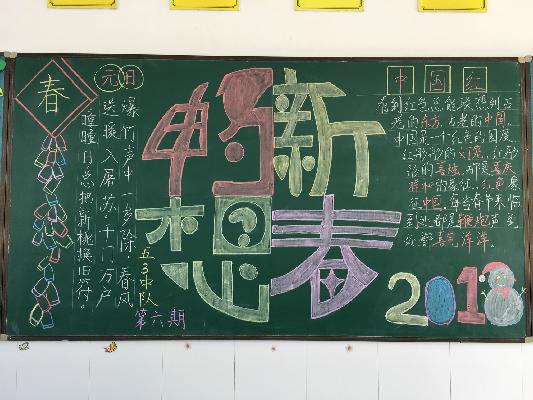 春
元日
爆竹声中一岁除,春风
送暖入屠苏.千门万户
瞳瞳日总把新桃换旧符。
五3中队
第六期
畅想
新春
中国红
看到红色总能联想到古
老的东方,古老的中国。
中国是一个红色的国度
红彤彤的灯笼,红彤
彤的春联,都是喜庆
祥和的象征,红色象
征中国,每当春节来临
到处都是鞭炮声到
处都喜气洋洋。
2018